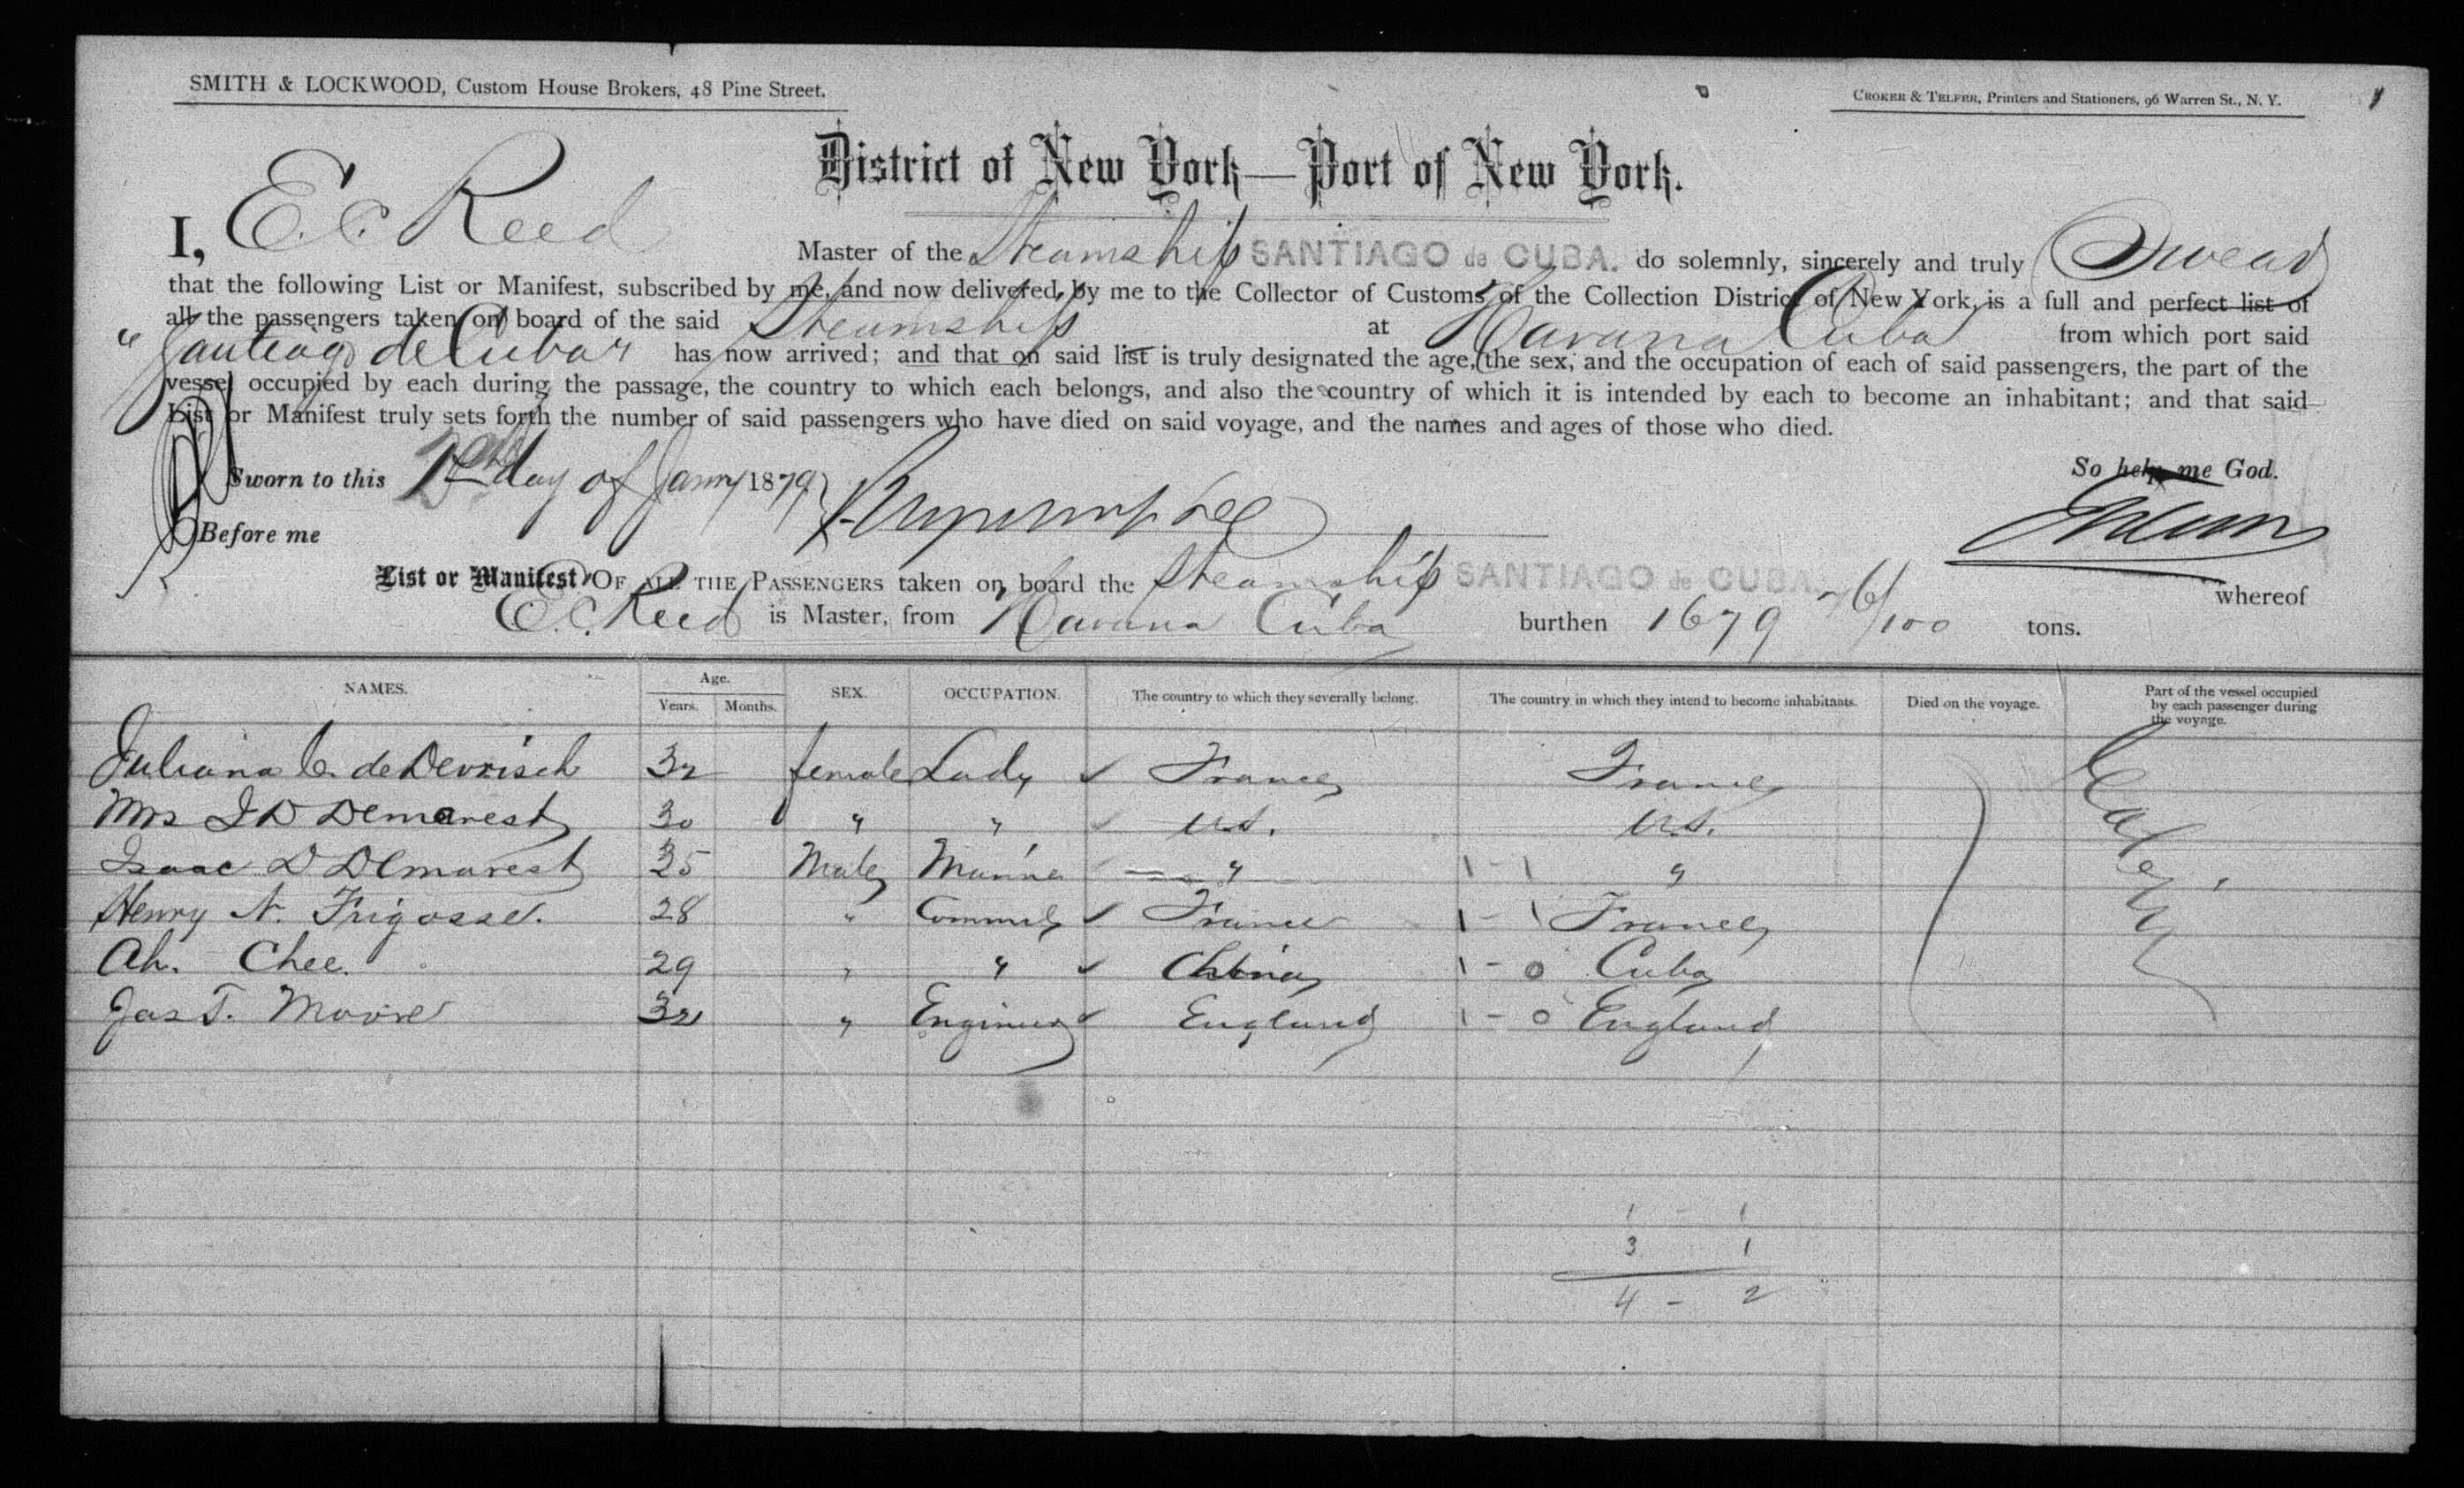 SMITH & LOCKWOOD, Custom House Brokers, 48 Pine Street.
CROKER & TELFER, Printers and Stationers, 96 Warren St., N. Y.
1
District of New York—Port of New York.
I, E. C. Reed Master of the Steamship SANTIAGO de CUBA. do solemnly, sincerely and truly Swear
that the following List or Manifest, subscribed by me, and now delivered by me to the Collector of Customs of the Collection District of New York, is a full and perfect list of
all the passengers taken on board of the said Steamship at Havana Cuba from which port said
"Santiago de Cuba" has now arrived; and that on said list is truly designated the age, the sex, and the occupation of each of said passengers, the part of the
vessel occupied by each during the passage, the country to which each belongs, and also the country of which it is intended by each to become an inhabitant; and that said
List or Manifest truly sets forth the number of said passengers who have died on said voyage, and the names and ages of those who died.
Sworn to this day of Janry 1879 So help me God.
Before me
List or Manifest OF ALL THE PASSENGERS taken on board the Steamship SANTIAGO de CUBA. whereof
E. C. Reed is Master, from Havana Cuba burthen 1679 76/100 tons.
NAMES. Age. Years. Months. SEX. OCCUPATION. The country to which they severally belong. The country in which they intend to become inhabitants. Died on the voyage. Part of the vessel occupied by each passenger during the voyage.
Juliana C. de Devrisch 32 female Lady ✓ France France
Mrs I D Demarest 30 " " ✓ U.S. U.S.
Isaac D Demarest 35 Male Marine " 1 - 1 "
Henry N. Frigosse. 28 " ✓ France 1 - 1 France
Ah. Chee. 29 " " ✓ China 1 - 0 Cuba
Jas T. Moore 32 " Engineer ✓ England 1 - 0 England
1 - 1
3 1
4 - 2